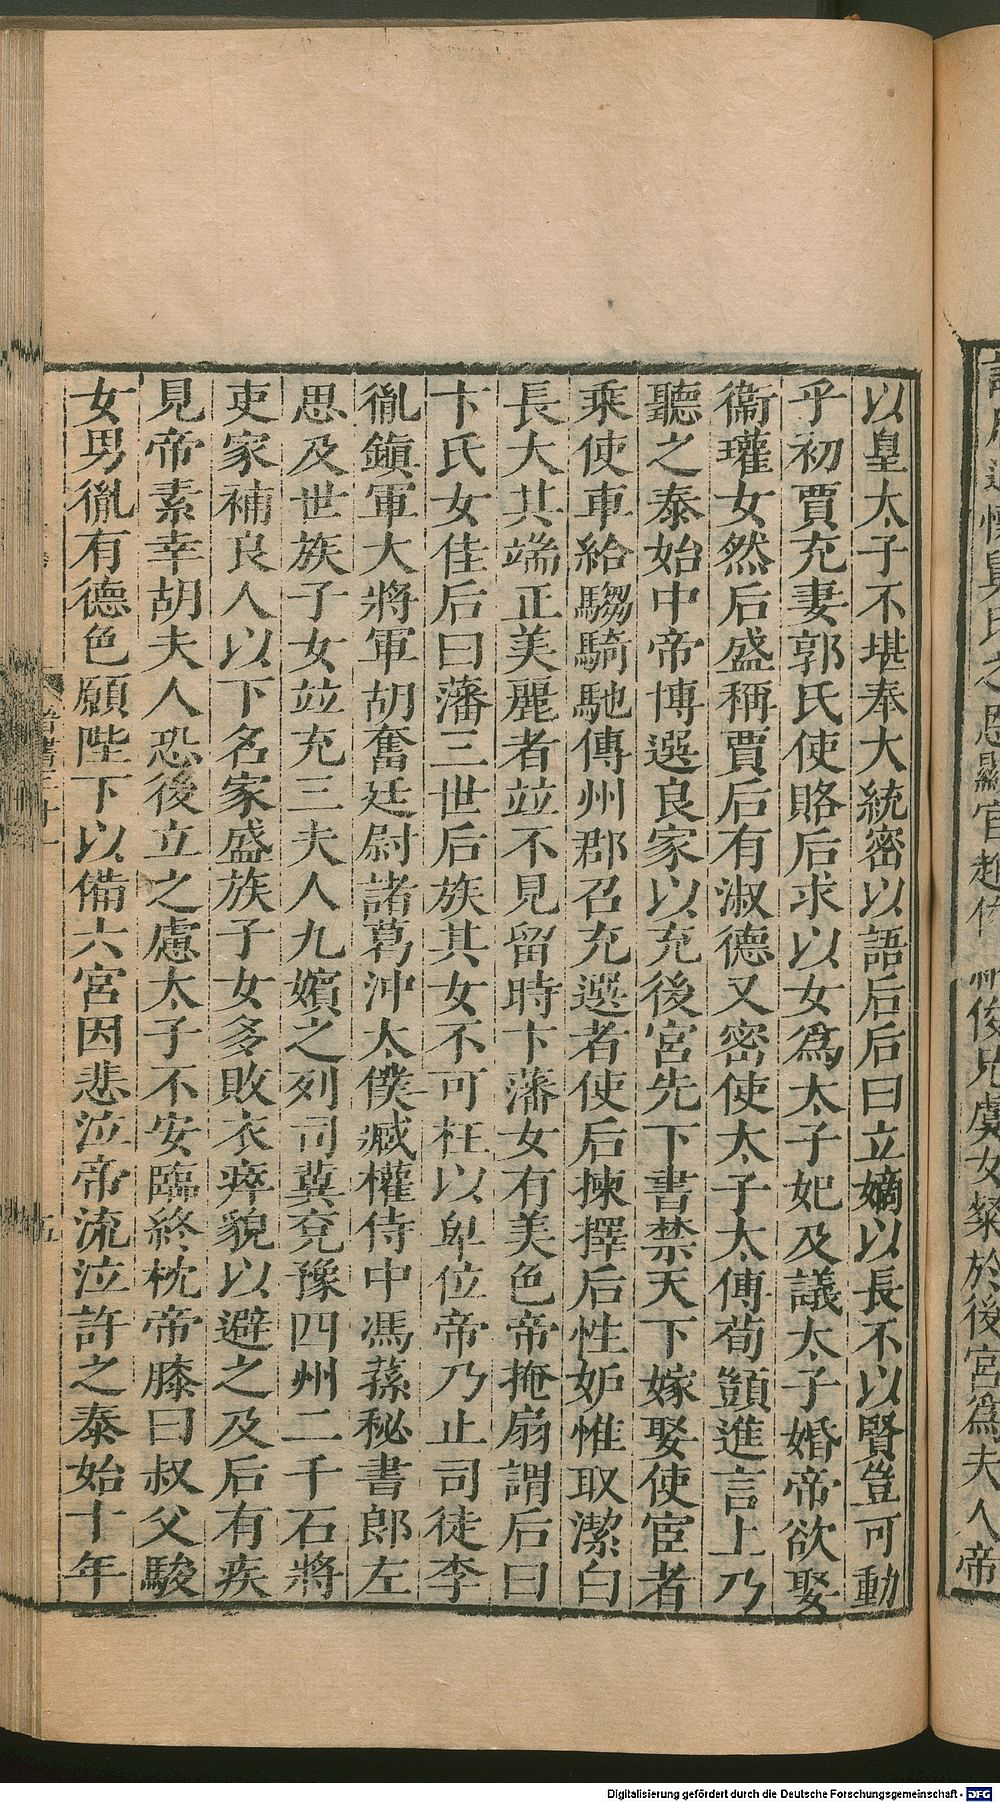 以皇太子不堪奉大統密以語后后曰立嫡以長不以賢豈可動
乎初賈充妻郭氏使賂后求以女爲太子妃及議太子婚帝欲娶
衞瓘女然后盛稱賈后有淑德又密使太子太傅荀顗進言上乃
聽之泰始中帝博選良家以充後宮先下書禁天下嫁娶使宦者
乘使車給騶騎馳傳州郡召充選者使后揀擇后性妒惟取潔白
長大其端正美麗者竝不見留時卞藩女有美色帝掩扇謂后曰
卞氏女佳后曰藩三世后族其女不可枉以卑位帝乃止司徒李
胤鎭軍大將軍胡奮廷尉諸葛沖太僕臧權侍中馮蓀秘書郎左
思及世族子女竝充三夫人九嬪之列司冀兗豫四州二千石將
吏家補良人以下名家盛族子女多敗衣瘁貌以避之及后有疾
見帝素幸胡夫人恐後立之慮太子不安臨終枕帝膝曰叔父駿
女男胤有德色願陛下以備六宮因悲泣帝流泣許之泰始十年
五
俊兄虞女粲於後宮爲夫人帝
Digitalisierung gefördert durch die Deutsche Forschungsgemeinschaft - DFG